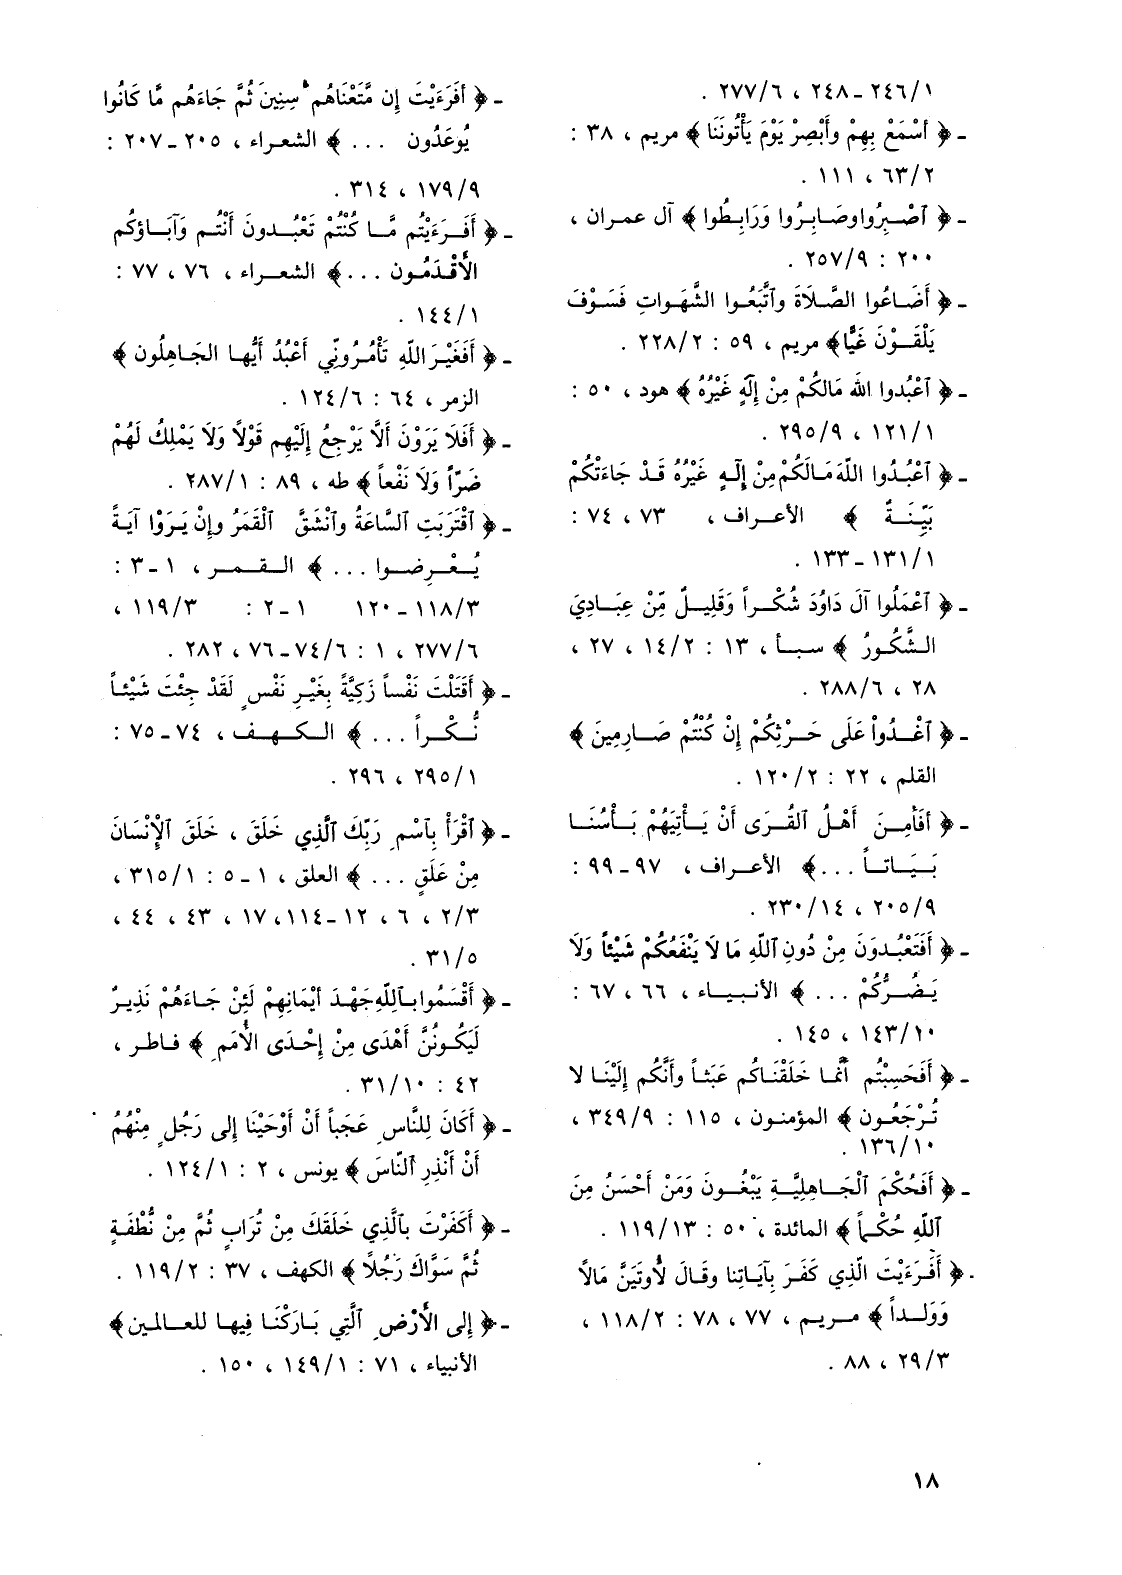 ٢٤٦/١ ـ ٢٤٨ ، ٢٧٧/٦ .
ـ ﴿ أَسْمَعْ بِهِمْ وأَبْصِرْ يَوْمَ يَأْتُونَنَا ﴾ مريم ، ٣٨ :
٦٣/٢ ، ١١١ .
ـ ﴿ ٱصْبِرُوا وصَابِرُوا وَرَابِطُوا ﴾ آل عمران ،
٢٠٠ : ٢٥٧/٩ .
ـ ﴿ أَضَاعُوا الصَّلَاةَ وٱتَّبَعُوا الشَّهَواتِ فَسَوْفَ
يَلْقَوْنَ غَيًّا ﴾ مريم ، ٥٩ : ٢٢٨/٢ .
ـ ﴿ ٱعْبُدُوا الله مَالكُمْ مِنْ إِلَهٍ غَيْرُهُ ﴾ هود ، ٥٠ :
١٢١/١ ، ٢٩٥/٩ .
ـ ﴿ ٱعْبُدُوا اللَّهَ مَالَكُمْ مِنْ إِلَهٍ غَيْرُهُ قَدْ جَاءَتْكُمْ
بَيِّنَةٌ ﴾ الأعراف ، ٧٣ ، ٧٤ :
١٣١/١ ـ ١٣٣ .
ـ ﴿ ٱعْمَلُوا آلَ دَاوُدَ شُكْراً وَقَلِيلٌ مِّنْ عِبَادِيَ
الشَّكُورُ ﴾ سبأ ، ١٣ : ١٤/٢ ، ٢٧ ،
٢٨ ، ٢٨٨/٦ .
ـ ﴿ ٱغْدُواْ عَلَى حَرْثِكُمْ إِنْ كُنْتُمْ صَارِمِينَ ﴾
القلم ، ٢٢ : ١٢٠/٢ .
ـ ﴿ أَفَأَمِنَ أَهْلُ القُرَى أَنْ يَأْتِيَهُمْ بَأْسُنَا
بَيَاتاً ... ﴾ الأعراف ، ٩٧ ـ ٩٩ :
٢٠٥/٩ ، ٢٣٠/١٤ .
ـ ﴿ أَفَتَعْبُدُونَ مِنْ دُونِ ٱللَّهِ مَا لَا يَنْفَعُكُمْ شَيْئاً وَلَا
يَضُرُّكُمْ ... ﴾ الأنبياء ، ٦٦ ، ٦٧ :
١٤٣/١٠ ، ١٤٥ .
ـ ﴿ أَفَحَسِبْتُم أَنَّمَا خَلَقْنَاكُم عَبَثاً وأَنَّكُم إِلَيْنَا لا
تُرْجَعُون ﴾ المؤمنون ، ١١٥ : ٣٤٩/٩ ،
١٣٦/١٠ .
ـ ﴿ أَفَحُكْمَ ٱلْجَاهِلِيَّةِ يَبْغُونَ وَمَنْ أَحْسَنُ مِنَ
ٱللَّهِ حُكْماً ﴾ المائدة ، ٥٠ : ١١٩/١٣ .
ـ ﴿ أَفَرَءَيْتَ الَّذِي كَفَرَ بِآيَاتِنا وقَالَ لأُوتَيَنَّ مَالاً
وَوَلَداً ﴾ مريم ، ٧٧ ، ٧٨ : ١١٨/٢ ،
٢٩/٣ ، ٨٨ .
ـ ﴿ أَفَرَءَيْتَ إِن مَّتَّعْنَاهُم سِنِينَ ثُمَّ جَاءَهُم مَّا كَانُوا
يُوعَدُون ... ﴾ الشعراء ، ٢٠٥ ـ ٢٠٧ :
١٧٩/٩ ، ٣١٤ .
ـ ﴿ أَفَرَءَيْتُم مَّا كُنْتُمْ تَعْبُدونَ أَنْتُم وَآبَاؤكُم
الأَقْدَمُون ... ﴾ الشعراء ، ٧٦ ، ٧٧ :
١٤٤/١ .
ـ ﴿ أَفَغَيْرَ اللَّهِ تَأْمُرُونِّي أَعْبُدُ أَيُّها الجَاهِلُون ﴾
الزمر ، ٦٤ : ١٢٤/٦ .
ـ ﴿ أَفَلَا يَرَوْنَ أَلَّا يَرْجِعُ إِلَيْهِم قَوْلًا وَلَا يَمْلِكُ لَهُمْ
ضَرّاً وَلَا نَفْعاً ﴾ طه ، ٨٩ : ٢٨٧/١ .
ـ ﴿ ٱقْتَرَبَتِ ٱلسَّاعَةُ وٱنْشَقَّ ٱلْقَمَرُ وإِنْ يَرَوْا آيَةً
يُعْرِضوا ... ﴾ القمر ، ١ ـ ٣ :
١١٨/٣ ـ ١٢٠ ١ ـ ٢ : ١١٩/٣ ،
٢٧٧/٦ ، ١ : ٧٤/٦ ـ ٧٦ ، ٢٨٢ .
ـ ﴿ أَقَتَلْتَ نَفْساً زَكِيَّةً بِغَيْرِ نَفْسٍ لَقَدْ جِئْتَ شَيْئاً
نُّكْراً ... ﴾ الكهف ، ٧٤ ـ ٧٥ :
٢٩٥/١ ، ٢٩٦ .
ـ ﴿ ٱقْرَأْ بِٱسْمِ رَبِّكَ ٱلَّذِي خَلَقَ ، خَلَقَ الإِنْسَانَ
مِنْ عَلَقٍ ... ﴾ العلق ، ١ ـ ٥ : ٣١٥/١ ،
٢/٣ ، ٦ ، ١٢ ـ ١١٤ ، ١٧ ، ٤٣ ، ٤٤ ،
٣١/٥ .
ـ ﴿ أَقْسَمُوا بٱللَّهِ جَهْدَ أَيْمَانِهِمْ لَئِنْ جَاءَهُمْ نَذِيرٌ
لَيَكُونُنَّ أَهْدَى مِنْ إِحْدَى الأُمَمِ ﴾ فاطر ،
٤٢ : ٣١/١٠ .
ـ ﴿ أَكَانَ لِلنَّاسِ عَجَباً أَنْ أَوْحَيْنَا إِلى رَجُلٍ مِنْهُمْ
أَنْ أَنْذِرِ ٱلنَّاسَ ﴾ يونس ، ٢ : ١٢٤/١ .
ـ ﴿ أَكَفَرْتَ بٱلَّذِي خَلَقَكَ مِنْ تُرَابٍ ثُمَّ مِنْ نُّطْفَةٍ
ثُمَّ سَوَّاكَ رَجُلًا ﴾ الكهف ، ٣٧ : ١١٩/٢ .
ـ ﴿ إِلى الأَرْضِ ٱلَّتِي بَارَكْنَا فِيها للعالمين ﴾
الأنبياء ، ٧١ : ١٤٩/١ ، ١٥٠ .
١٨